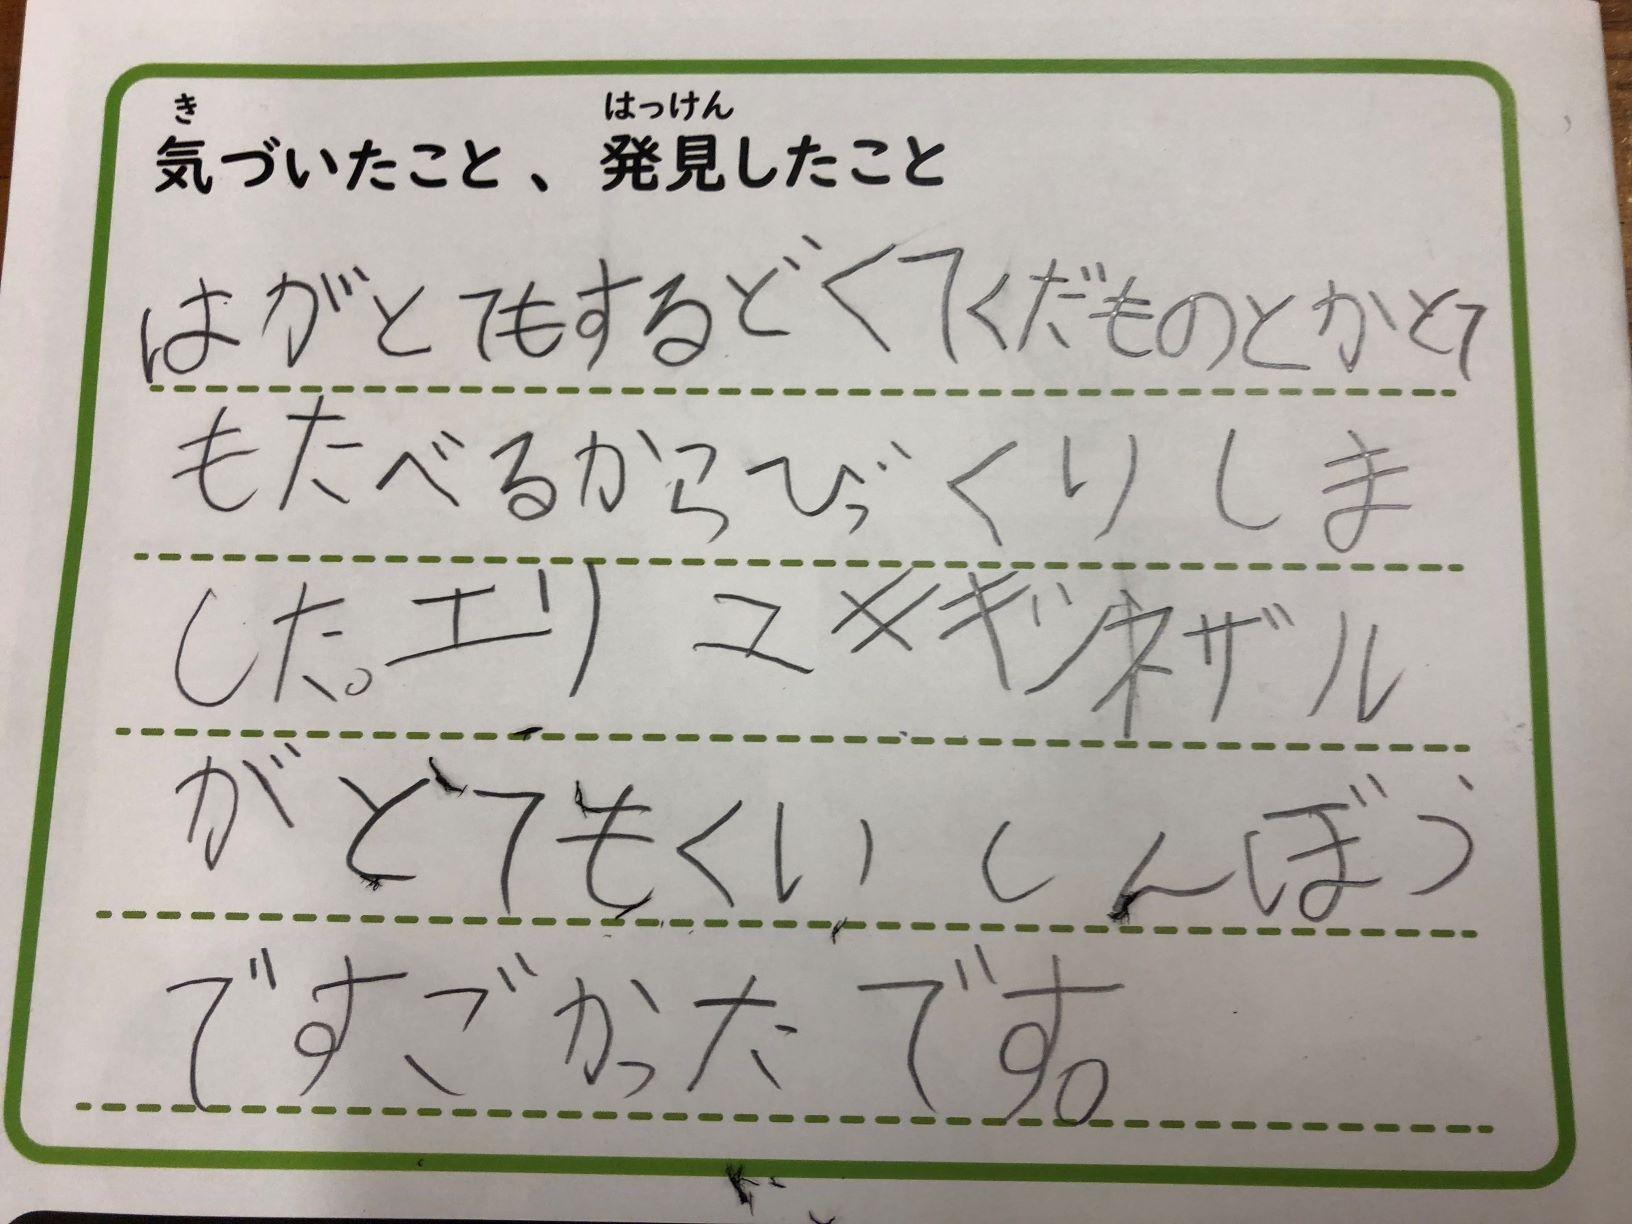 き はっけん
気づいたこと、発見したこと
はがとてもするどくてくだものとかとて
もたべるからびっくりしま
した。エリユメメキツネザル
がとてもくいしんぼう
ですごかったです。